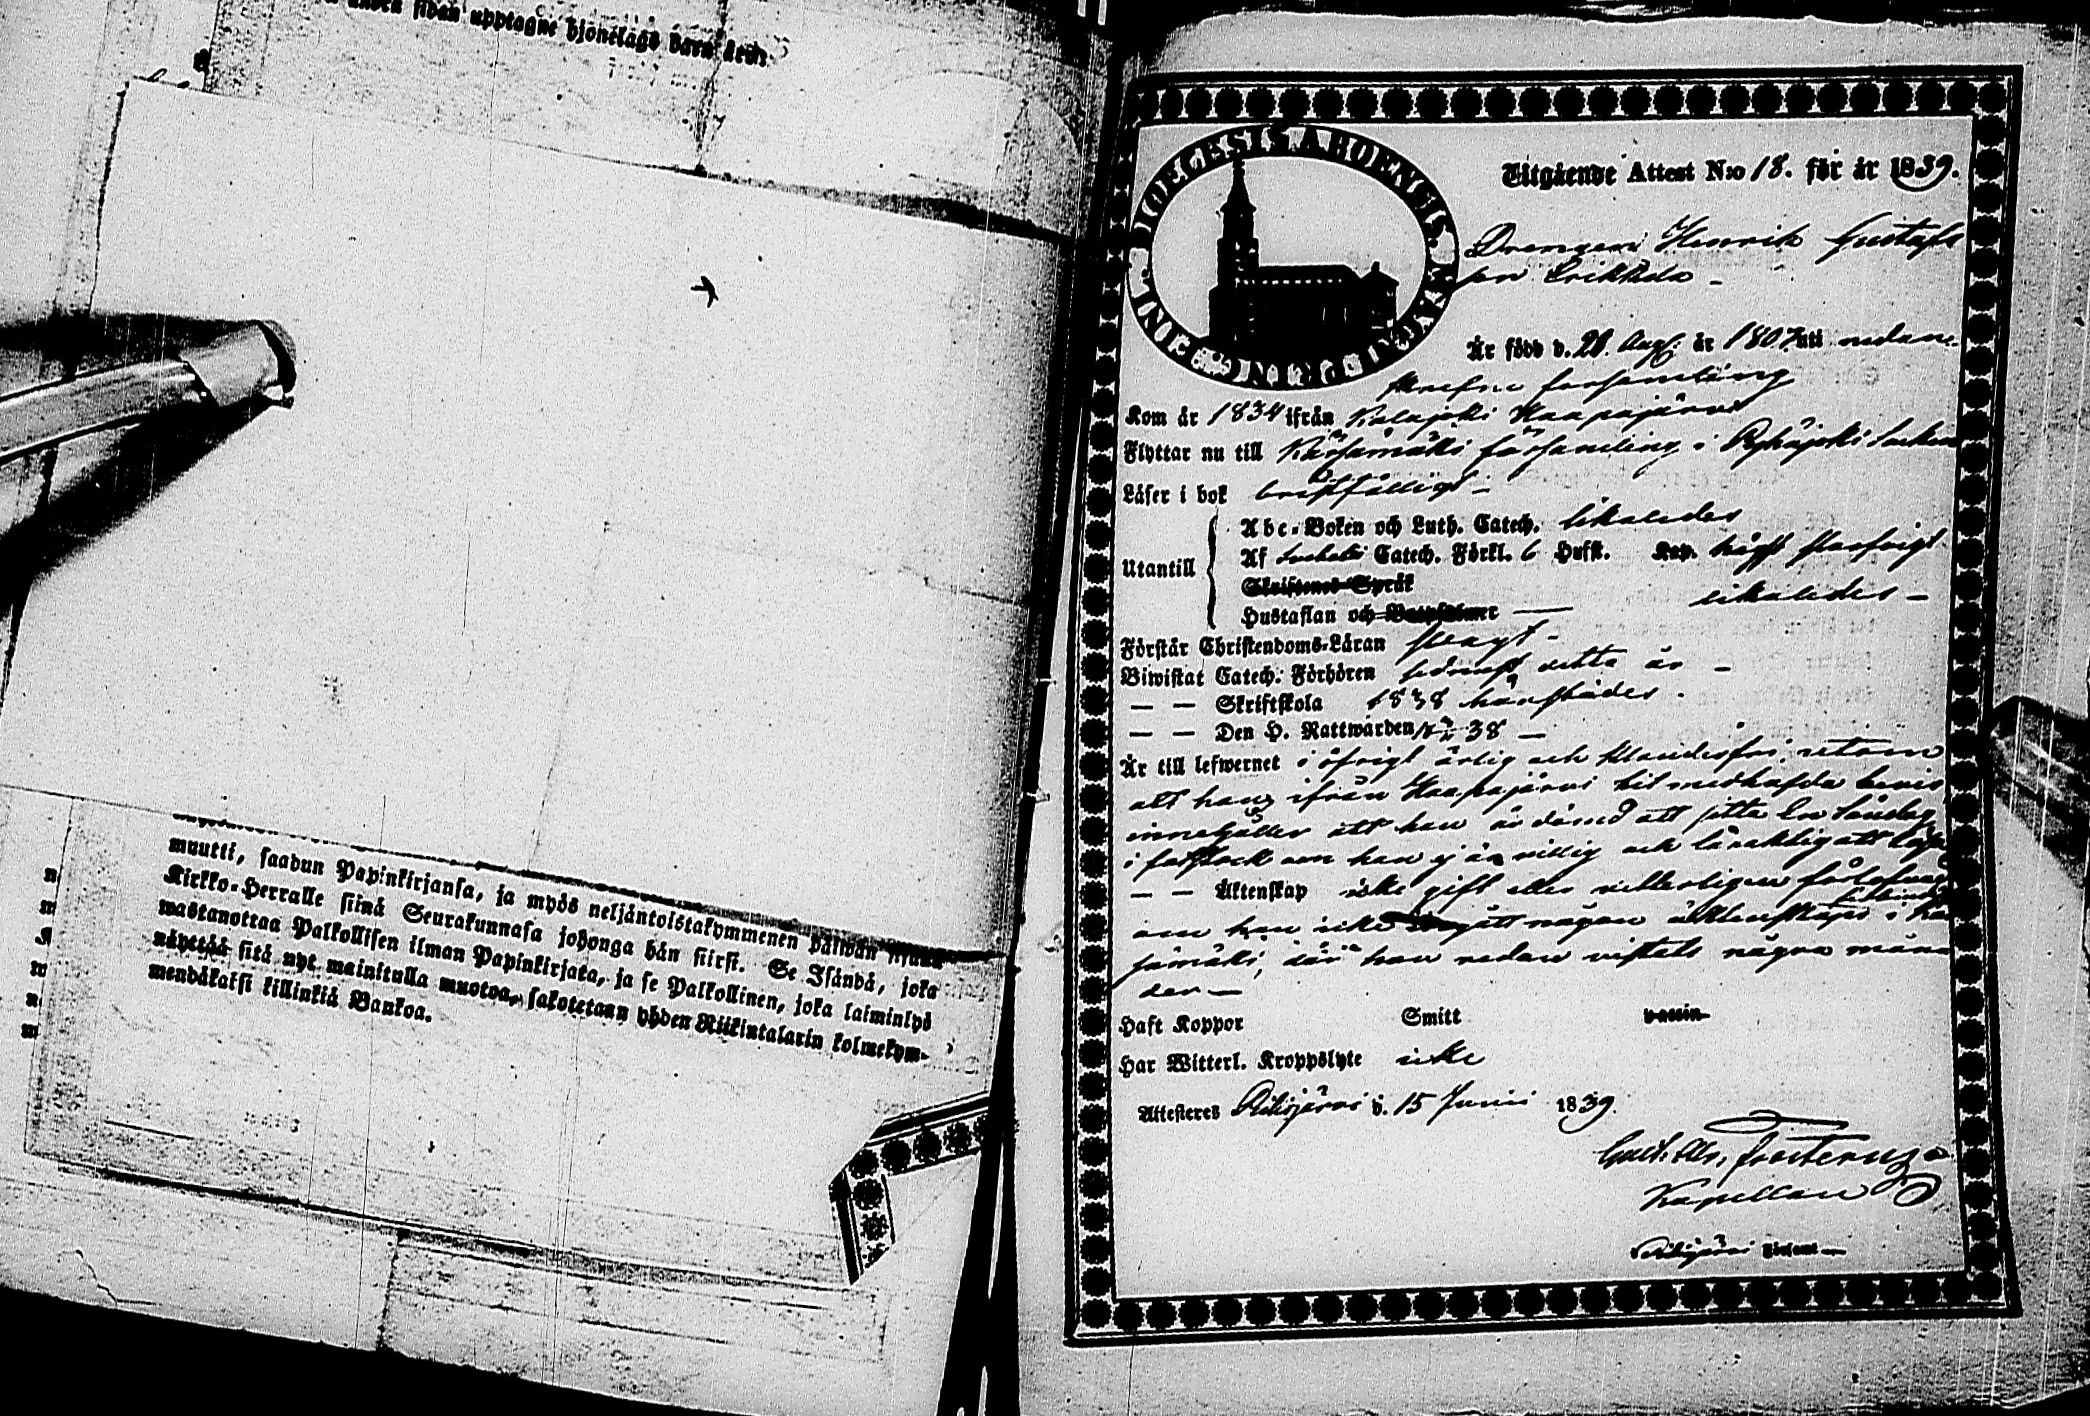 sidan upptagne hjonelags barn äro:
muutti, saadun Papinkirjansa, ja myös neljäntoistakymmenen päiwän sisällä
Kirkko-Herralle siinä Seurakunnasa johonga hän siirsi. Se Isändä, joka
wastanottaa Palkollisen ilman Papinkirjata, ja se Palkollinen, joka laiminlyö
näyttää sitä nyt mainitulla muotoa, sakotetaan yhden Riikintalarin kolmekym-
mendäkaksi killinkiä Bankoa.
DIOECESIS ABOENSIS. MAGNI PRINC: FINL:
Utgående Attest N:o 18. för år 1839.
Drengen Henrik Gustafs
son Erikkila
Är född d. 28. Aug. år 1807 uti nedan-
skrefne församling
Kom år 1834 ifrån Kalajoki Haapajärvi
Flyttar nu till Kärsämäki församling i Pyhäjoki Socken
Läser i bok bristfälligt
Utantill
Abc-Boken och Luth. Catech. likaledes
Af Catech. Förkl. 6 Hufst. Kap. högst slarfvigt
Skriftenes Språk
Hustaflan och Botpsalmer likaledes
Förstår Christendoms-Läran svagt
Biwistat Catech. Förhören sednast detta år
— — Skriftskola 1838 härstädes.
— — Den H. Nattwarden 38
Är till lefwernet i öfrigt ärlig och klanderfri; utom
att hans ifrån Haapajärvi hit medhafda bevis
innehåller att han är dömd att sitta En Söndag
i fotstock om han ej är villig och läraktig att läsa
— — Äktenskap icke gift eller vitterligen förlofvad
om han icke ingått någon äktenskaps i Kär
sämäki, där han redan vistats några måna
der —
Haft Koppor Smitt vaccin
Har Witterl. Kroppslyte icke
Attesteres Pidisjärvi d. 15 Junii 1839.
Gust. Frosterus
Kapellan
Pidisjärvi Församl